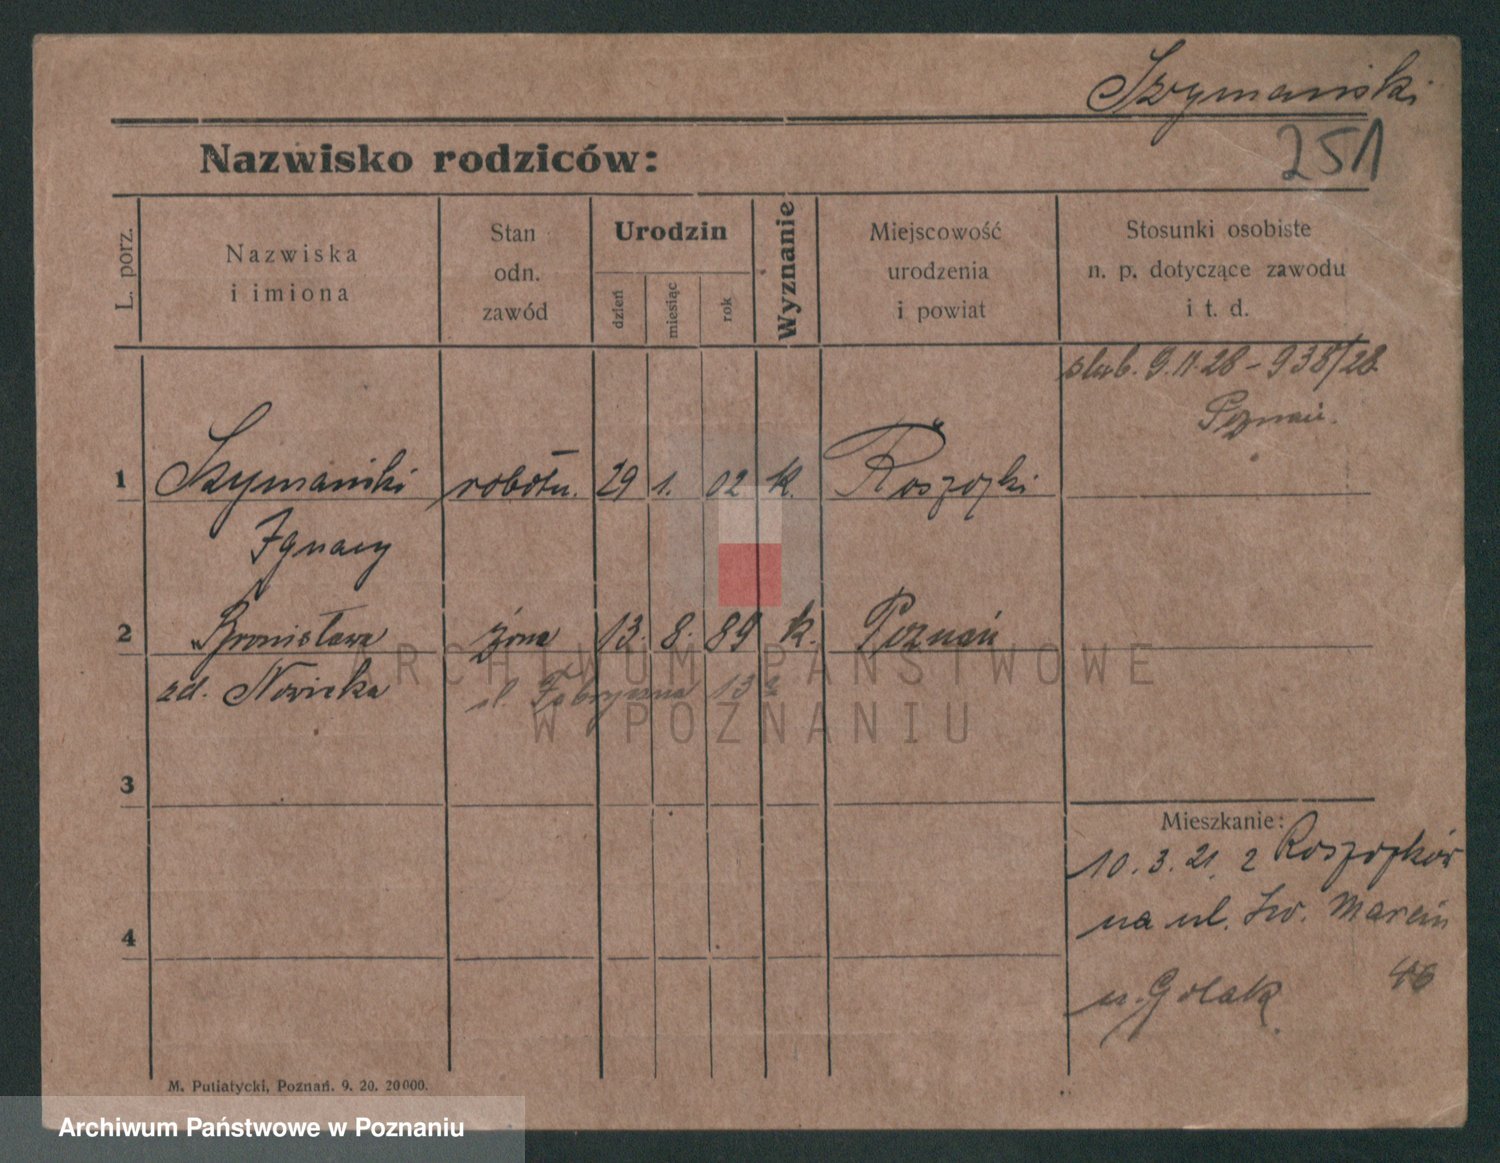 Szymański
251
Nazwisko rodziców:
L. porz.
Nazwiska
i imiona
Stan
odn.
zawód
Urodzin
dzień
miesiąc
rok
Wyznanie
Miejscowość
urodzenia
i powiat
Stosunki osobiste
n. p. dotyczące zawodu
i t. d.
ślub. 9.11.28 - 938/28
Poznań.
1 Szymański robotn. 29 1. 02 k. Roszojki
Ignacy
2 Bronisława żona 13. 8. 89 k. Poznań
zd. Nowicka ul. Fabryczna 13
3
4
Mieszkanie:
10.3.21. z
na ul. Św. Marcin
46
u. Golak
M. Putiatycki, Poznań. 9. 20. 20000.
ARCHIWUM PAŃSTWOWE
W POZNANIU
Archiwum Państwowe w Poznaniu